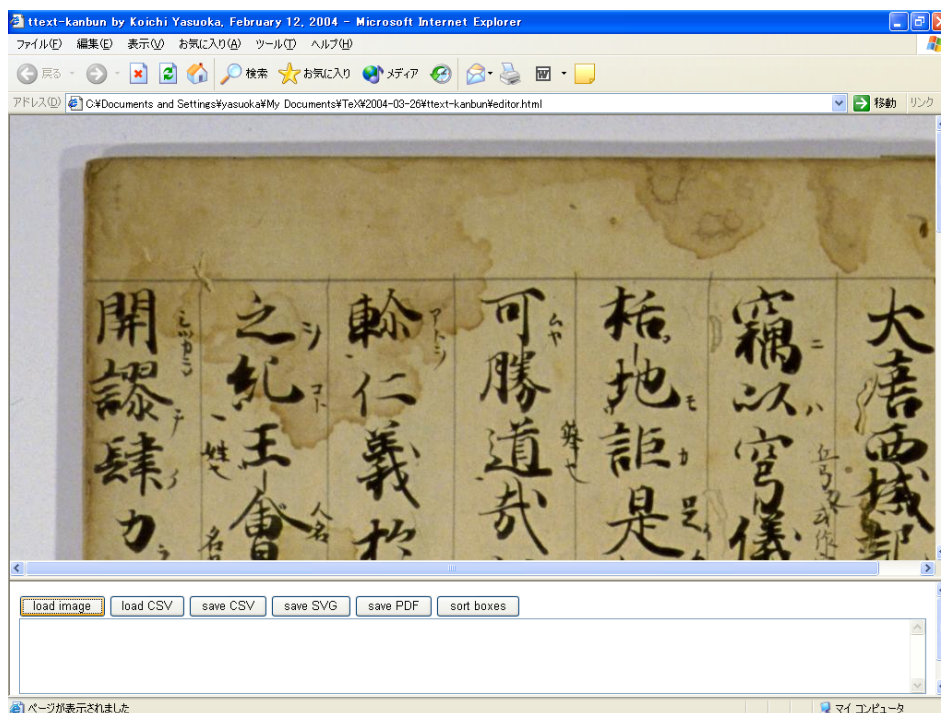 ttext-kanbun by Koichi Yasuoka, February 12, 2004 - Microsoft Internet Explorer
ファイル(F) 編集(E) 表示(V) お気に入り(A) ツール(T) ヘルプ(H)
戻る 検索 お気に入り メディア
アドレス(D) C:¥Documents and Settings¥yasuoka¥My Documents¥TeX¥2004-03-26¥ttext-kanbun¥editor.html 移動 リンク
大唐西域
竊以穹儀
ニ ハ
栝地詎是
モ カ
可勝道哉
ムヤ
軨仁義於
アトシ
之紀王會
シ コト
姓也 人名
開謬肆力
テ
load image load CSV save CSV save SVG save PDF sort boxes
ページが表示されました マイ コンピュータ